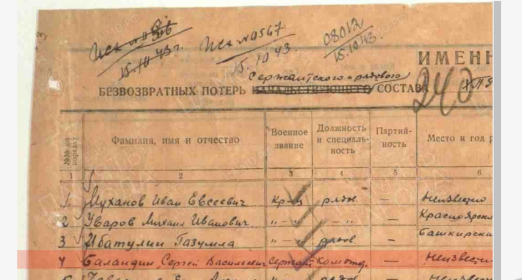 Исх № 0566
15.10.43г.
Исх № 0567
15.10.43.
08012
15.10.43.
ИМЕНН
Сержантского и рядового
БЕЗВОЗВРАТНЫХ ПОТЕРЬ НАЧАЛЬСТВУЮЩЕГО СОСТАВА
240
№№ по порядку
Фамилия, имя и отчество
Военное звание
Должность и специальность
Партийность
Место и год р
1 2 3 4 5 6
1 Муханов Иван Евсеевич кр-ц – неизвестно
2 Уваров Михаил Иванович –"– –"– – Красноярск
3 Ибатулин Газулла –"– – Башкирск
4 Баландин Сергей Васильевич Сержант – Неизвестн